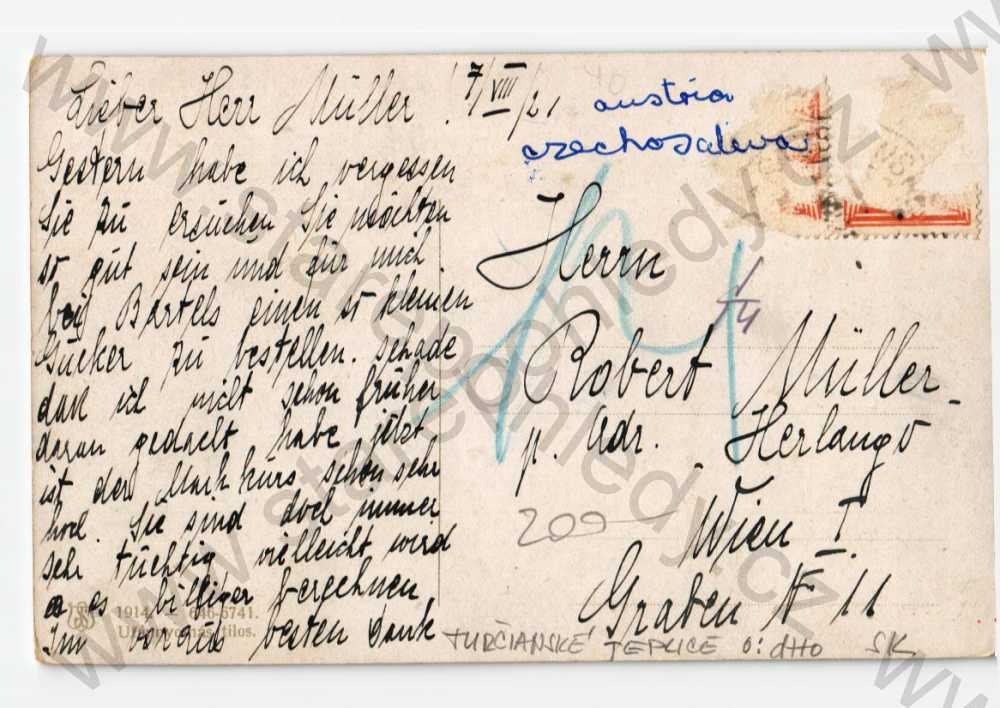 Lieber Herr Müller! 7/VIII/21
Gestern habe ich vergessen
Sie zu ersuchen Sie möchten
so gut sein und für mich
bei Bartels einen so kleinen
Gucker zu bestellen. Schade
dass ich nicht schon früher
daran gedacht habe jetzt
ist der Mark kurs schon sehr
hoch. Sie sind doch immer
sehr tüchtig vielleicht wird
es billiger berechnen.
Im voraus besten Dank
1914. 646-6741.
Utánnyomás tilos.
austria
czechosalova
Herrn
Robert Müller
p. Adr. Herlango
Wien I.
Graben N 11
1/14
200-
TURČIANSKÉ TEPLICE o: dHO SK
www.starepohledy.cz